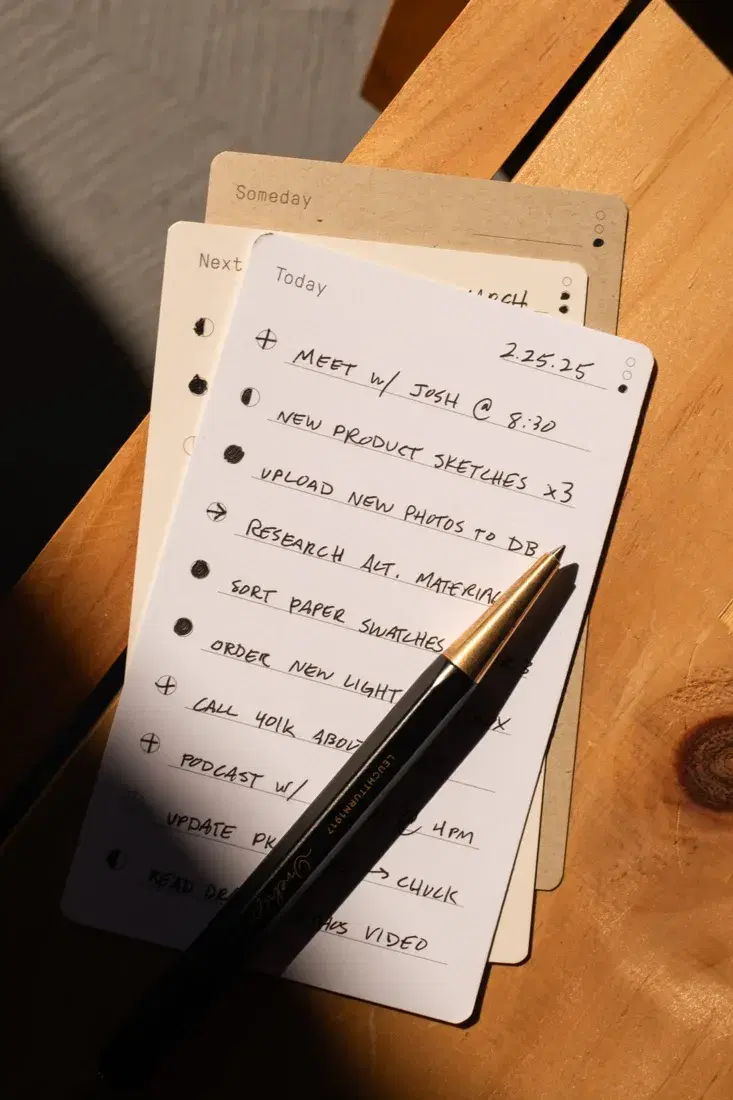 Someday
Next
ARCH
Today
2.25.25
MEET W/ JOSH @ 8:30
NEW PRODUCT SKETCHES x3
UPLOAD NEW PHOTOS TO DB
RESEARCH ALT.
SORT PAPER SWATCHES
ORDER NEW LIGHT
CALL 401K
PODCAST W/ @ 4PM
UPDATE → CHUCK
READ VIDEO
LEUCHTTURN1917